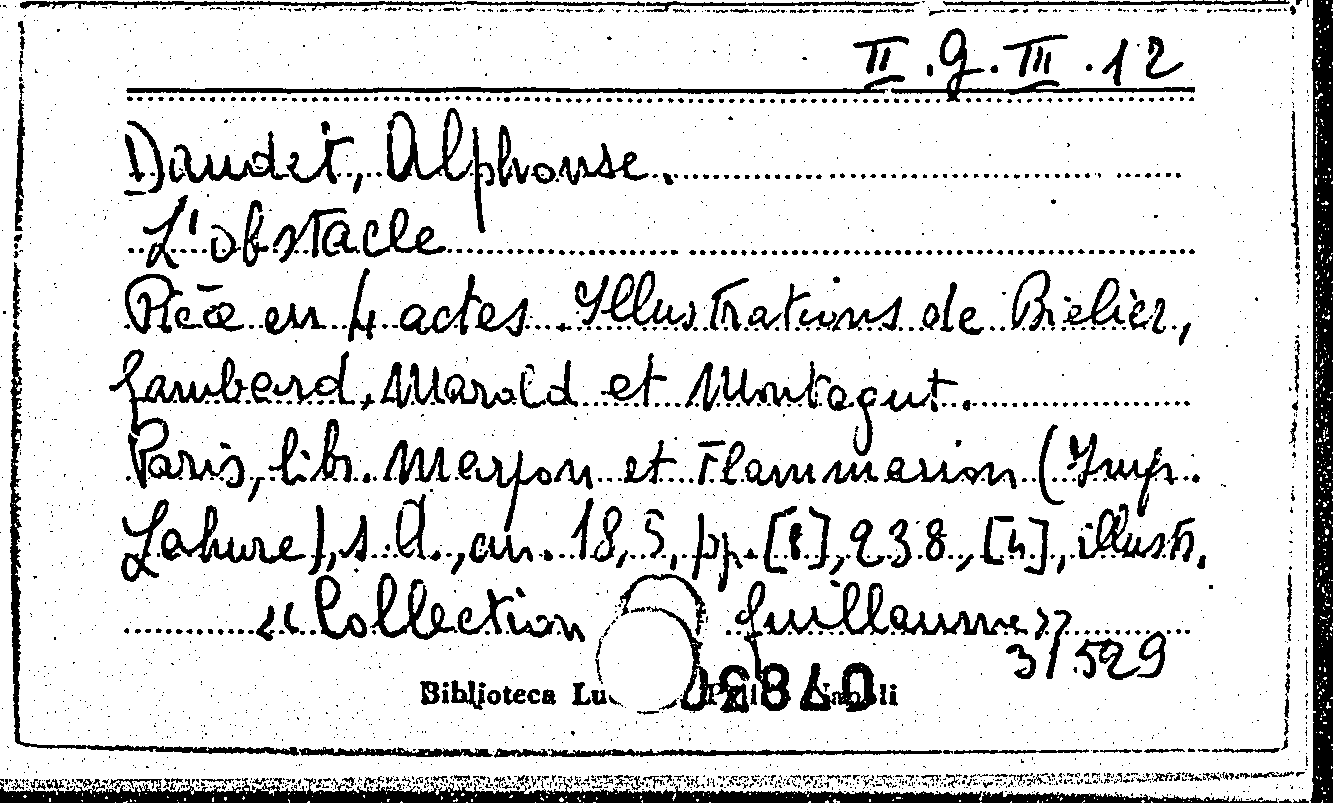 II.9.III.12
Daudet, Alphonse.
L'obstacle
Pièce en 4 actes. Illustrations de Bieler,
Gambard, Marold et Montagut.
Paris, lib. Marpon et Flammarion (Imp.
Lahure), s.d., cm. 18,5, pp. [8], 238, [4], illustr.
«Collection Guillaume»
3/529
Biblioteca